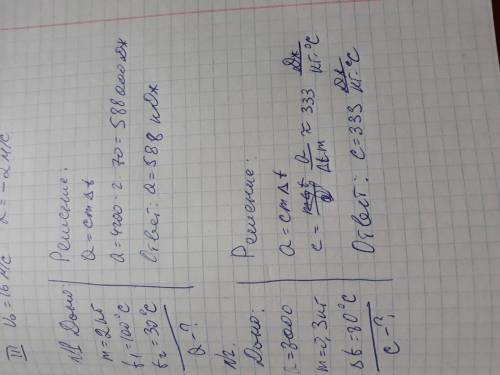 II  U₀=16 м/с   a=-2 м/с
N1 Дано:
m=2кг
t₁=100°C
t₂=30°C
Q-?
Решение:
Q=cmΔt
Q=4200·2·70=588000Дж
Ответ: Q=588 кДж
N2.
Дано:
=8000
m=0,3кг
Δt=80°C
c-?
Решение:
Q=cmΔt
c= Q/Δt·m ≈ 333 Дж/кг·°C
Ответ: c=333 Дж/кг·°C